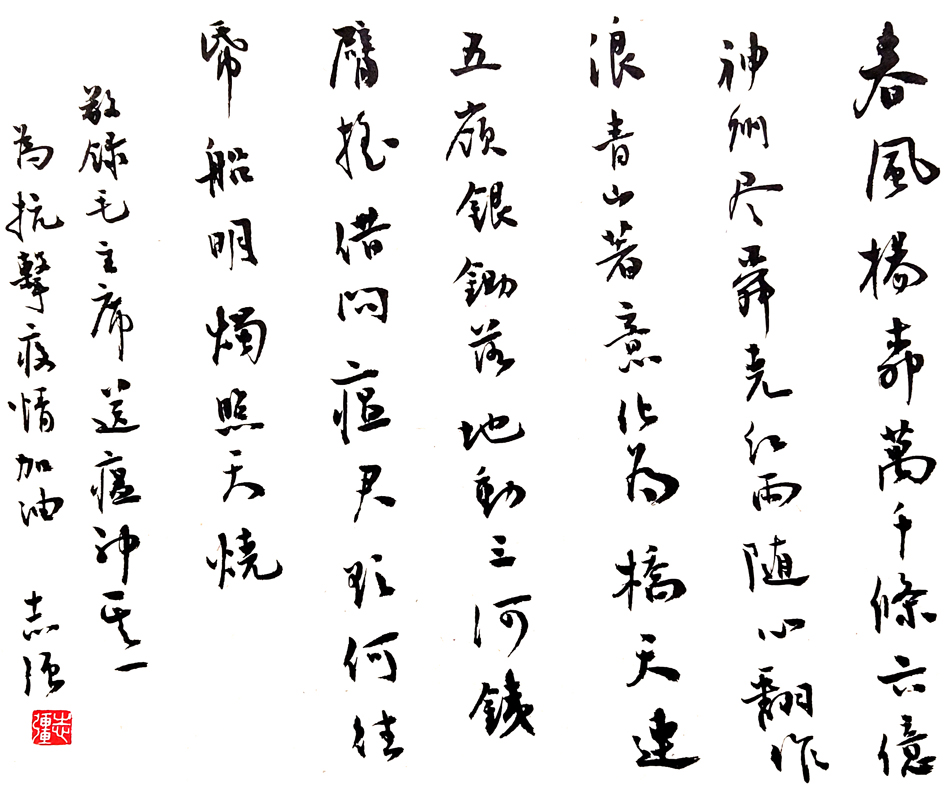 春風楊柳萬千條六億
神州尽舜尧红雨随心翻作
浪青山著意化為橋天連
五嶺銀鋤落地動三河鐵
臂摇借問瘟君欲何往
帋船明燭照天燒
敬録毛主席送瘟神其一
為抗擊疫情加油 志强
志強